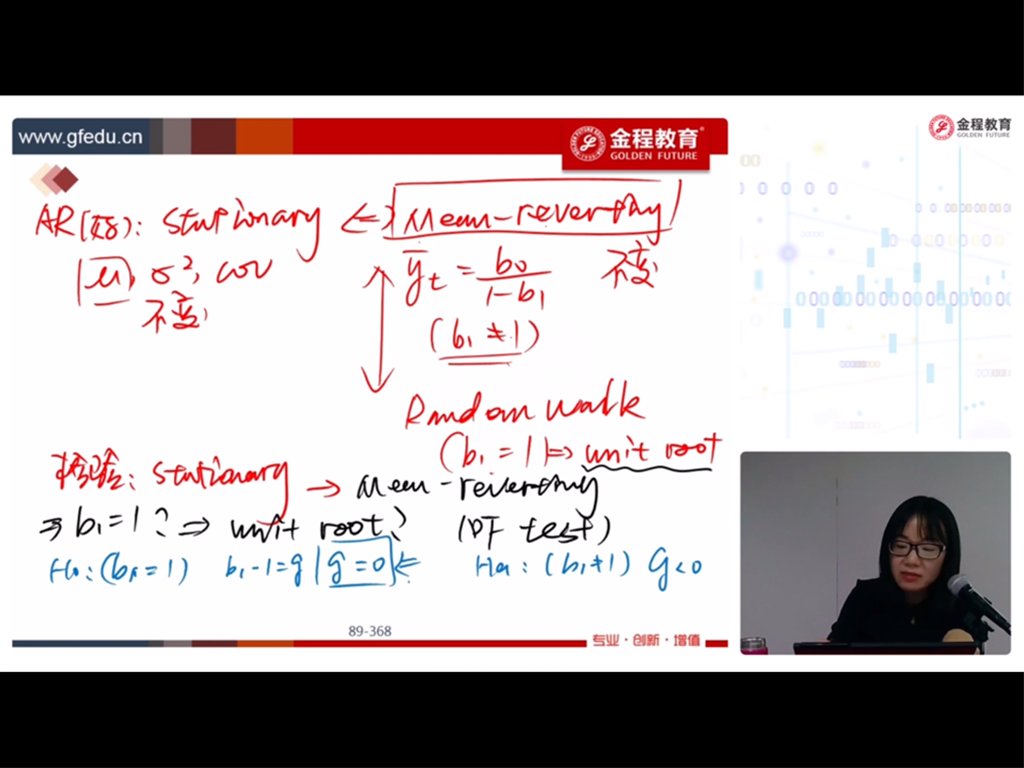 www.gfedu.cn
金程教育
GOLDEN FUTURE
金程教育
GOLDEN FUTURE
AR(): stationary ⇔ Mean-reverting
μ, σ², cov
不变
ȳt = b0 / 1-b1
不变
(b1 ≠ 1)
Random walk
(b1 = 1) ⇒ unit root
检验: stationary → Mean-reverting
⇒ b1 = 1? ⇒ unit root? (DF test)
H0: (b1 = 1) b1 - 1 = g g = 0 ⇐ Ha: (b1 ≠ 1) g < 0
89-368
专业·创新·增值